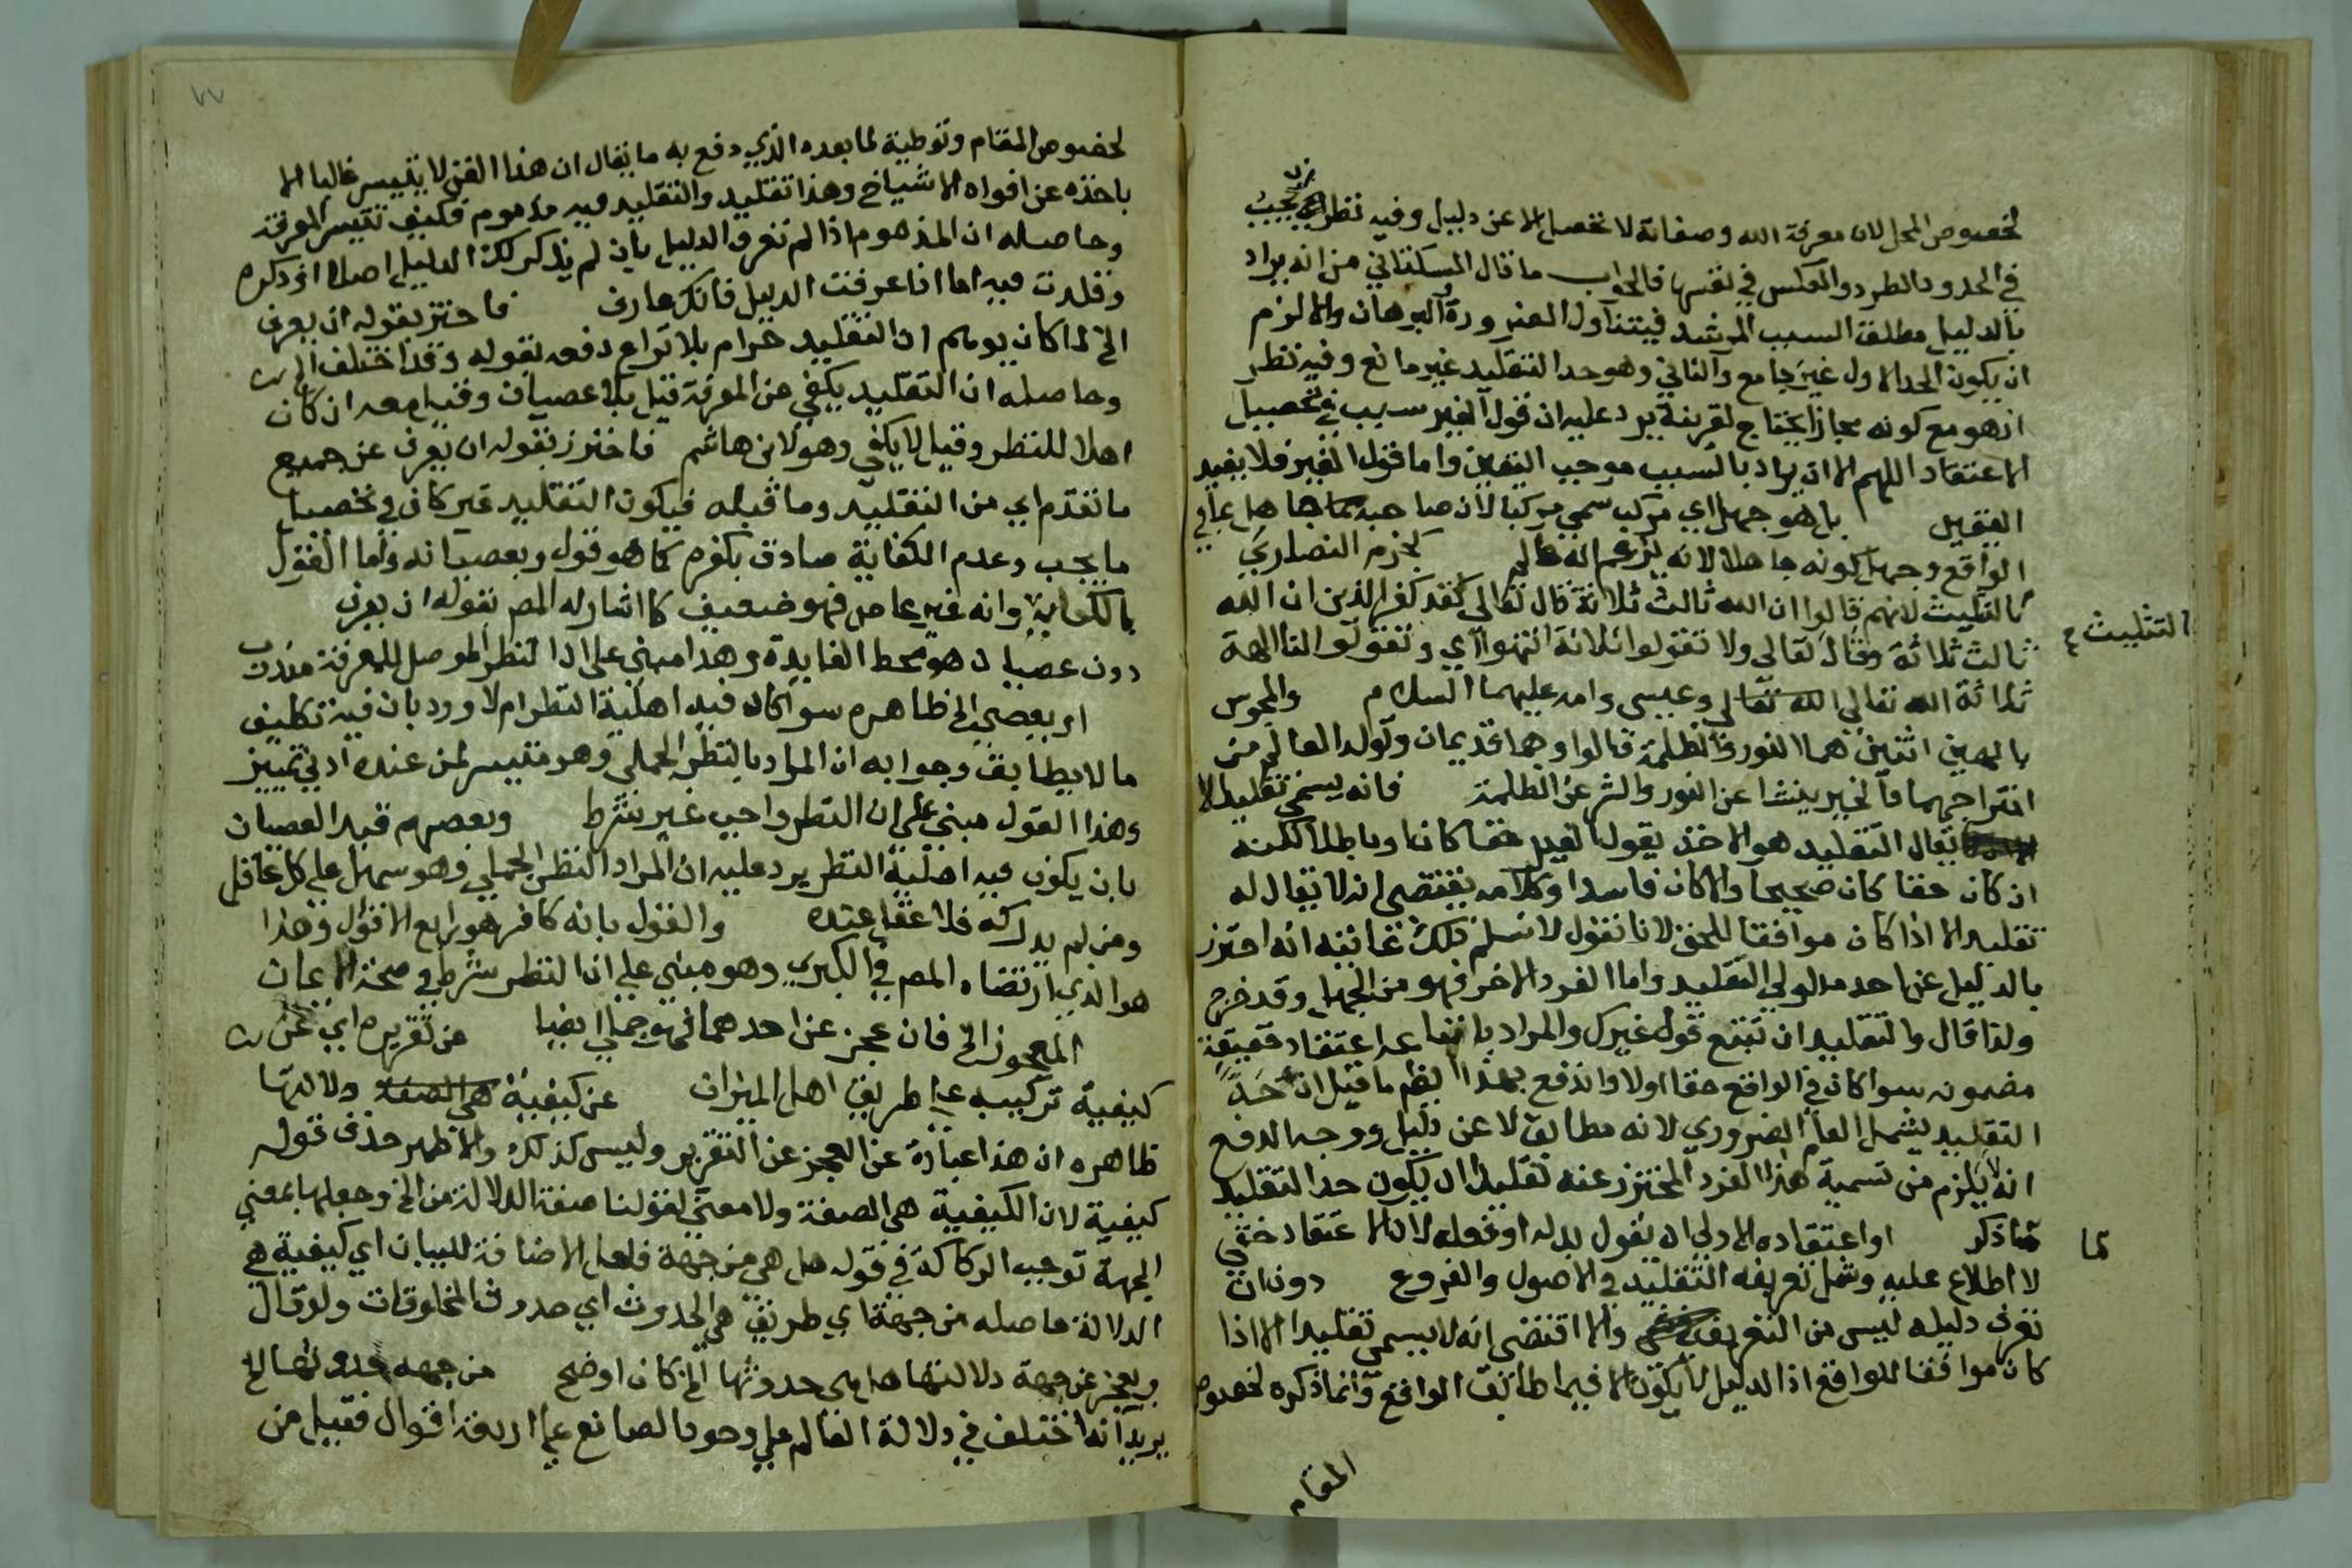 لخصوص المحل لان معرفة الله وصفاته لا تحصل الا عن دليل وفيه نظر يجب
في الحدود الطرد والعكس في نفسها فالجواب ما قال السكتاني من انه يراد
بالدليل مطلق السبب المرشد فيتناول الضرورة البرهان والا لزم
ان يكون الحد الاول غير جامع والثاني وهو حد التقليد غير مانع وفيه نظر
اذ هو مع كونه مجازا يحتاج لقرينة يرد عليه ان قول الغير سبب في تحصيل
الاعتقاد اللهم الا ان يراد بالسبب موجب اليقين واما قول الغير فلا يفيد
اليقين بل هو جهل اي مركب سمي مركبا لان صاحبه جاهل بما في
الواقع وجهل كونه جاهلا لانه يزعم انه عالم كجزم النصارى
بالتثليث لانهم قالوا ان الله ثالث ثلاثة قال تعالى لقد كفر الذين ان الله
التثليث
ثالث ثلاثة وقال تعالى ولا تقولوا ثلاثة انتهوا اي وتقولوا الآلهة
ثلاثة الله تعالى وعيسى وامه عليهما السلام والمجوس
بالهين اثنين هما النور والظلمة قالوا وهما قديمان وتولد العالم من
امتزاجهما فالخير ينشا عن النور والشر عن الظلمة فانه يسمى تقليدا لا
يقال التقليد هو الاخذ بقول الغير حقا كان او باطلا لكنه
ان كان حقا كان صحيحا والا كان فاسدا وكلامه يقتضي انه لا يقال له
تقليد الا اذا كان موافقا للحق لانا نقول لا نسلم ذلك غايته انه احترز
بالدليل عن احد مدلولي التقليد واما الفرد الاخر فهو من الجهل وقد خرج
ولذا قال والتقليد ان تتبع قول غيرك والمراد باتباعه اعتقاد حقيقة
مضمونه سوا كان في الواقع حقا اولا واندفع بهذا ما قيل ان حد
التقليد يشمل العلم الضروري لانه مطابق لا عن دليل ووجه الدفع
انه لا يلزم من تسمية هذا الفرد المحترز عنه تقليدا ان يكون حد التقليد
ما ذكر او اعتقاده الاولى ان يقول بدله او فعله لان الاعتقاد خفي
لما
لا اطلاع عليه وشمل تعريفه التقليد في الاصول والفروع دون ان
تعرف دليله ليس من التعريف والا اقتضى انه لا يسمى تقليدا الا اذا
كان موافقا للواقع اذ الدليل لا يكون الا فيما طابق الواقع وانما ذكره لخصوص
المقام
٧٧
لخصوص المقام وتوطية لما بعده الذي دفع به ما يقال ان هذا الفن لا يتيسر غالبا الا
باخذه عن افواه الاشياخ وهذا تقليد والتقليد فيه مذموم فكيف تتيسر المعرفة
وحاصله ان المذموم اذا لم تعرف الدليل بان لم يذكر لك الدليل اصلا او ذكره
وقلدت فيه اما اذا عرفت الدليل فانك عارف فاحترز بقوله ان يعرف
الخ لما كان يوهم ان التقليد حرام بلا نزاع دفعه بقوله وقد اختلف الخ
وحاصله ان التقليد يكفي عن المعرفة قيل بلا عصيان وقيل معه ان كان
اهلا للنظر وقيل لا يكفي وهو لابن هاشم فاحترز بقوله ان يعرف عن جميع
ما تقدم اي من التقليد وما قبله فيكون التقليد غير كاف في تحصيل
ما يجب وعدم الكفاية صادق بكفره كما هو قول وبعصيانه واما القول
بالكفاية وانه غير عاص فهو ضعيف كما اشار له المص بقوله ان يعرف
دون عصيان هو محط الفايدة وهذا مبني على ان النظر الموصل للمعرفة مندوب
او يعصي الخ ظاهره سوا كان فيه اهلية النظر ام لا ورد بان فيه تكليف
ما لا يطاق وجوابه ان المراد بالنظر الجملي وهو متيسر لمن عنده ادنى تمييز
وهذا القول مبني على ان النظر واجب غير شرط وبعضهم قيد العصيان
بان يكون فيه اهلية النظر يرد عليه ان المراد النظر الجملي وهو سهل على كل عاقل
ومن لم يدركه فلا عقل عنده والقول بانه كافر هو رابع الاقوال وهذا
هو الذي ارتضاه المص في الكبرى وهو مبني على ان النظر شرط في صحة الايمان
المعجوز الخ فان عجز عن احدهما فهو جملي ايضا من تقريره اي عن
كيفية تركيبه على طريق اهل الميزان عن كيفية دلالتها
ظاهره ان هذا عبارة عن العجز عن التقرير وليس كذلك والاظهر حذف قوله
كيفية لان الكيفية هي الصفة ولا معنى لقولنا صفة الدلالة من الخ وجعلها بمعنى
الجهة توجب الركاكة في قوله هل هي من جهة فلعل الاضافة للبيان اي كيفية هي
الدلالة حاصله من جهة اي طريق هي الحدوث اي حدوث المخلوقات ولو قال
ويعجز عن جهة دلالتها هل هي حدوثها الخ كان اوضح من جهة حدوثها الخ
يريد انه اختلف في دلالة العالم على وجود الصانع على اربعة اقوال فقيل من